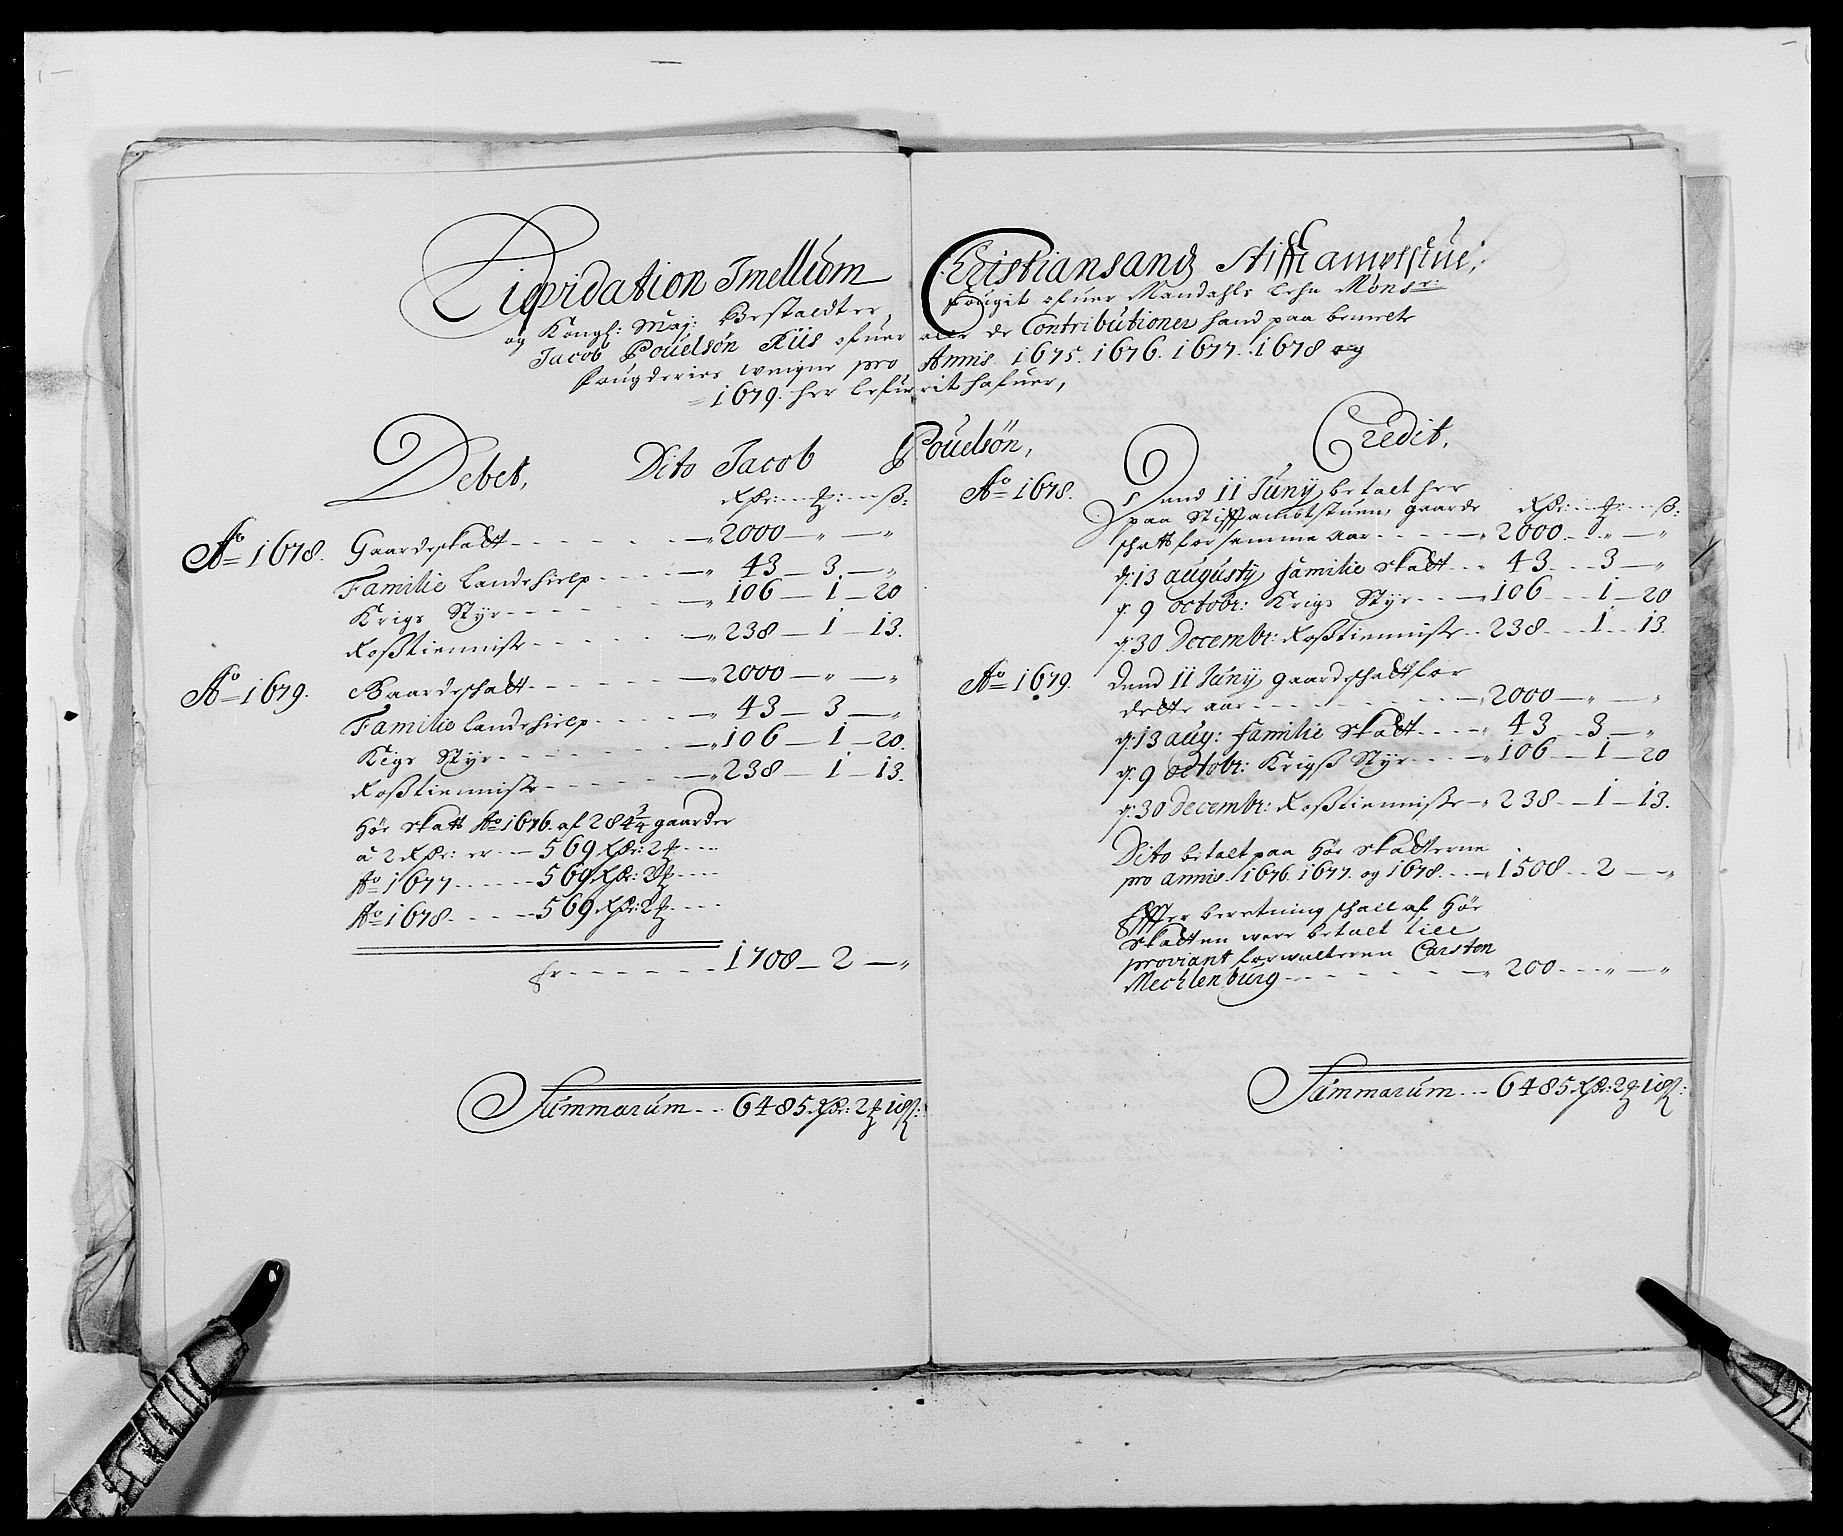 Liqvidation Imellum Christiansandz Stifftamptstue,
og Kongl: Maj: Bestaldter, fougit ofuer Mandahls lehn Monsr:
Jacob Pouelsøn Riis ofuer alle de Contributioner hand paa bemelte
fougderies weigne pro Annis. 1675. 1676. 1677. 1678 og
1679. her lefuerit hafuer,
Debet, Dito Jacob Pouelsøn, Credit.
Rdr: ß:
Ao 1678. Gaardeskatt 2000 — „ — „
Familie Landehielp 43 — 3 — „
Krigs Styr 106 — 1 — 20
Rosstienniste 238 — 1 — 13.
Ao 1679. Gaardeschatt 2000 — „ — „
Familie landehielp 43 — 3 — „
Kigs Styr 106 — 1 — 20.
Rosstienniste 238 — 1 — 13.
Hør skatt Ao 1676. af 284 3/4 gaarder
à 2 Rdr: er 569 Rdr: 2
Ao 1677 569 Rdr: 2
Ao 1678 569 Rdr: 2
Er 1708 — 2 — „
Summarum 6485 Rdr: 2 18 ß:
Ao 1678. Dend 11 Juny betalt her
paa Stifftambtstuen gaarde Rdr: ß:
schatt for samme aar 2000 — „ — „
d: 13 augusty familie skatt 43 3 — „
d: 9 octobr: Krigs Styr 106 1 — 20
d: 30 Decembr: Rosstienniste 238 1 13.
Ao 1679. Dend 11 Juny gaardeschatt for
dette aar 2000 — „ — „
d: 13 aug: familie skatt 43 3 — „
d: 9 octobr: Krigs Styr 106 — 1 — 20
d: 30 Decembr: Rosstienniste 238 — 1 — 13.
Dito betalt paa Hør skatterne
pro annis. 1676. 1677. og 1678. 1508 2 — „
Effter beretning schall af Hør
skatten were betalt till
proviant forwalteren Carsten
Mechlenburg 200 „ — „
Summarum 6485 Rdr: 2 18 ß: